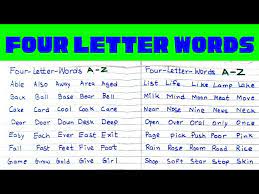 FOUR LETTER WORDS
Four-Letter-Words A-Z
Able Also Away Area Aged
Back Ball Base Bell
Cake Card Cool Cook Care
Deer Door Down Desk Deep
Easy Each Ever East
Fail Fast Feet
Game Grow Gold Give Girl
Four-Letter-Words A-Z
List Life Like Lamp Lake
Milk Mind Moon Meat Move
Near Nose Nine Neck
Open Over Oral only Once
Page pick Push Poor Pink
Rain Rose Room Road Rice
Shop Soft Star Stop Skin